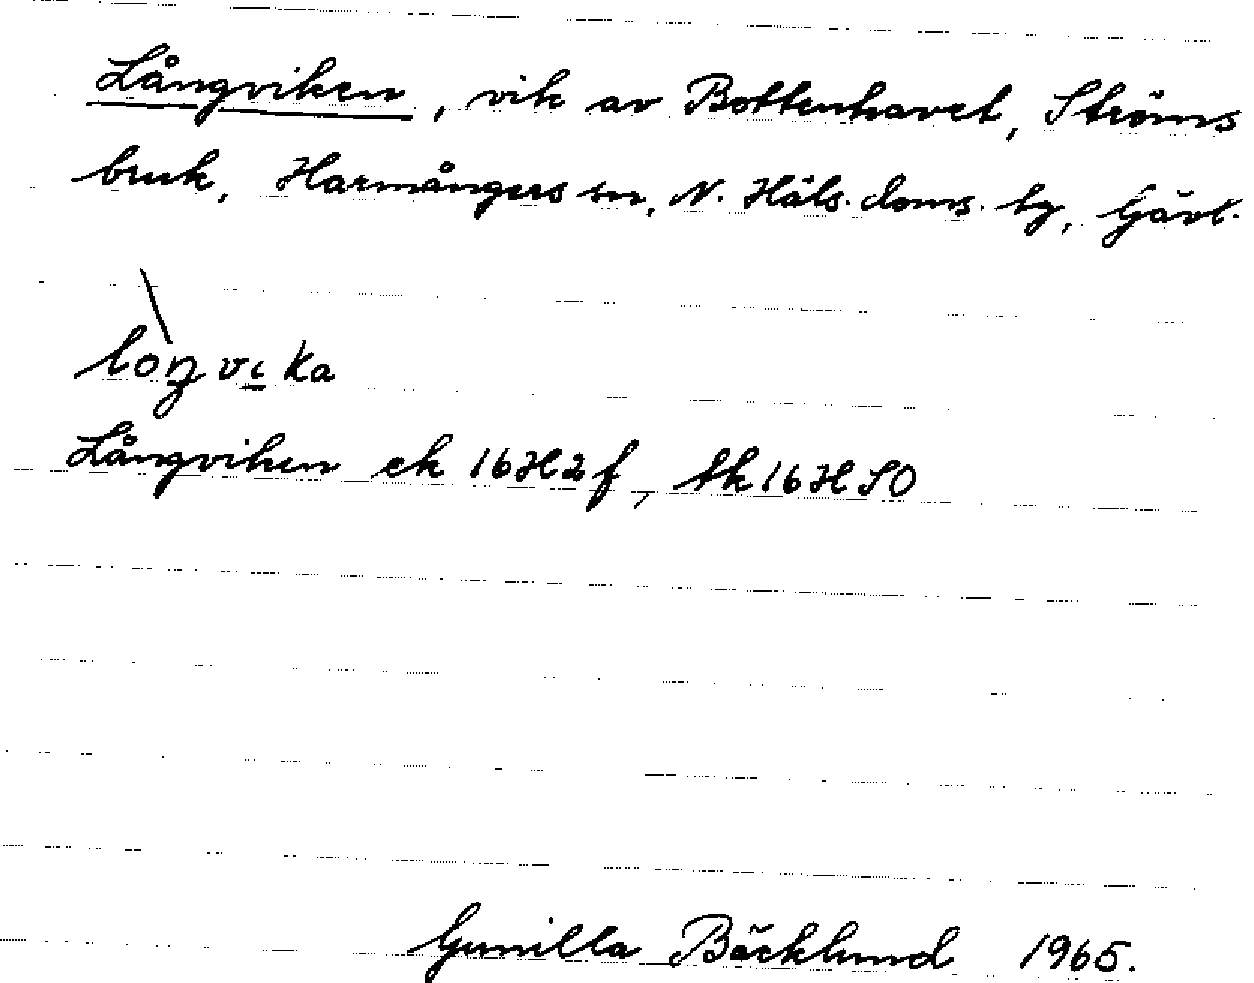 Långviken, vik av Bottenhavet, Ströms
bruk, Harmångers sn, N. Häls. doms. tg, Gävl.
lòŋvika
Långviken ek 16H2f, tk 16H SO
Gunilla Bäcklund 1965.